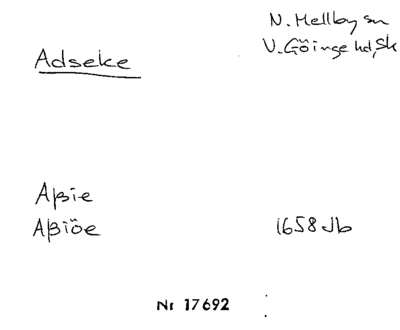 N. Mellby sn
Adseke
V. Göinge hd, Sk
Aßie
Aßiöe
1658 Jb
Nr 17692